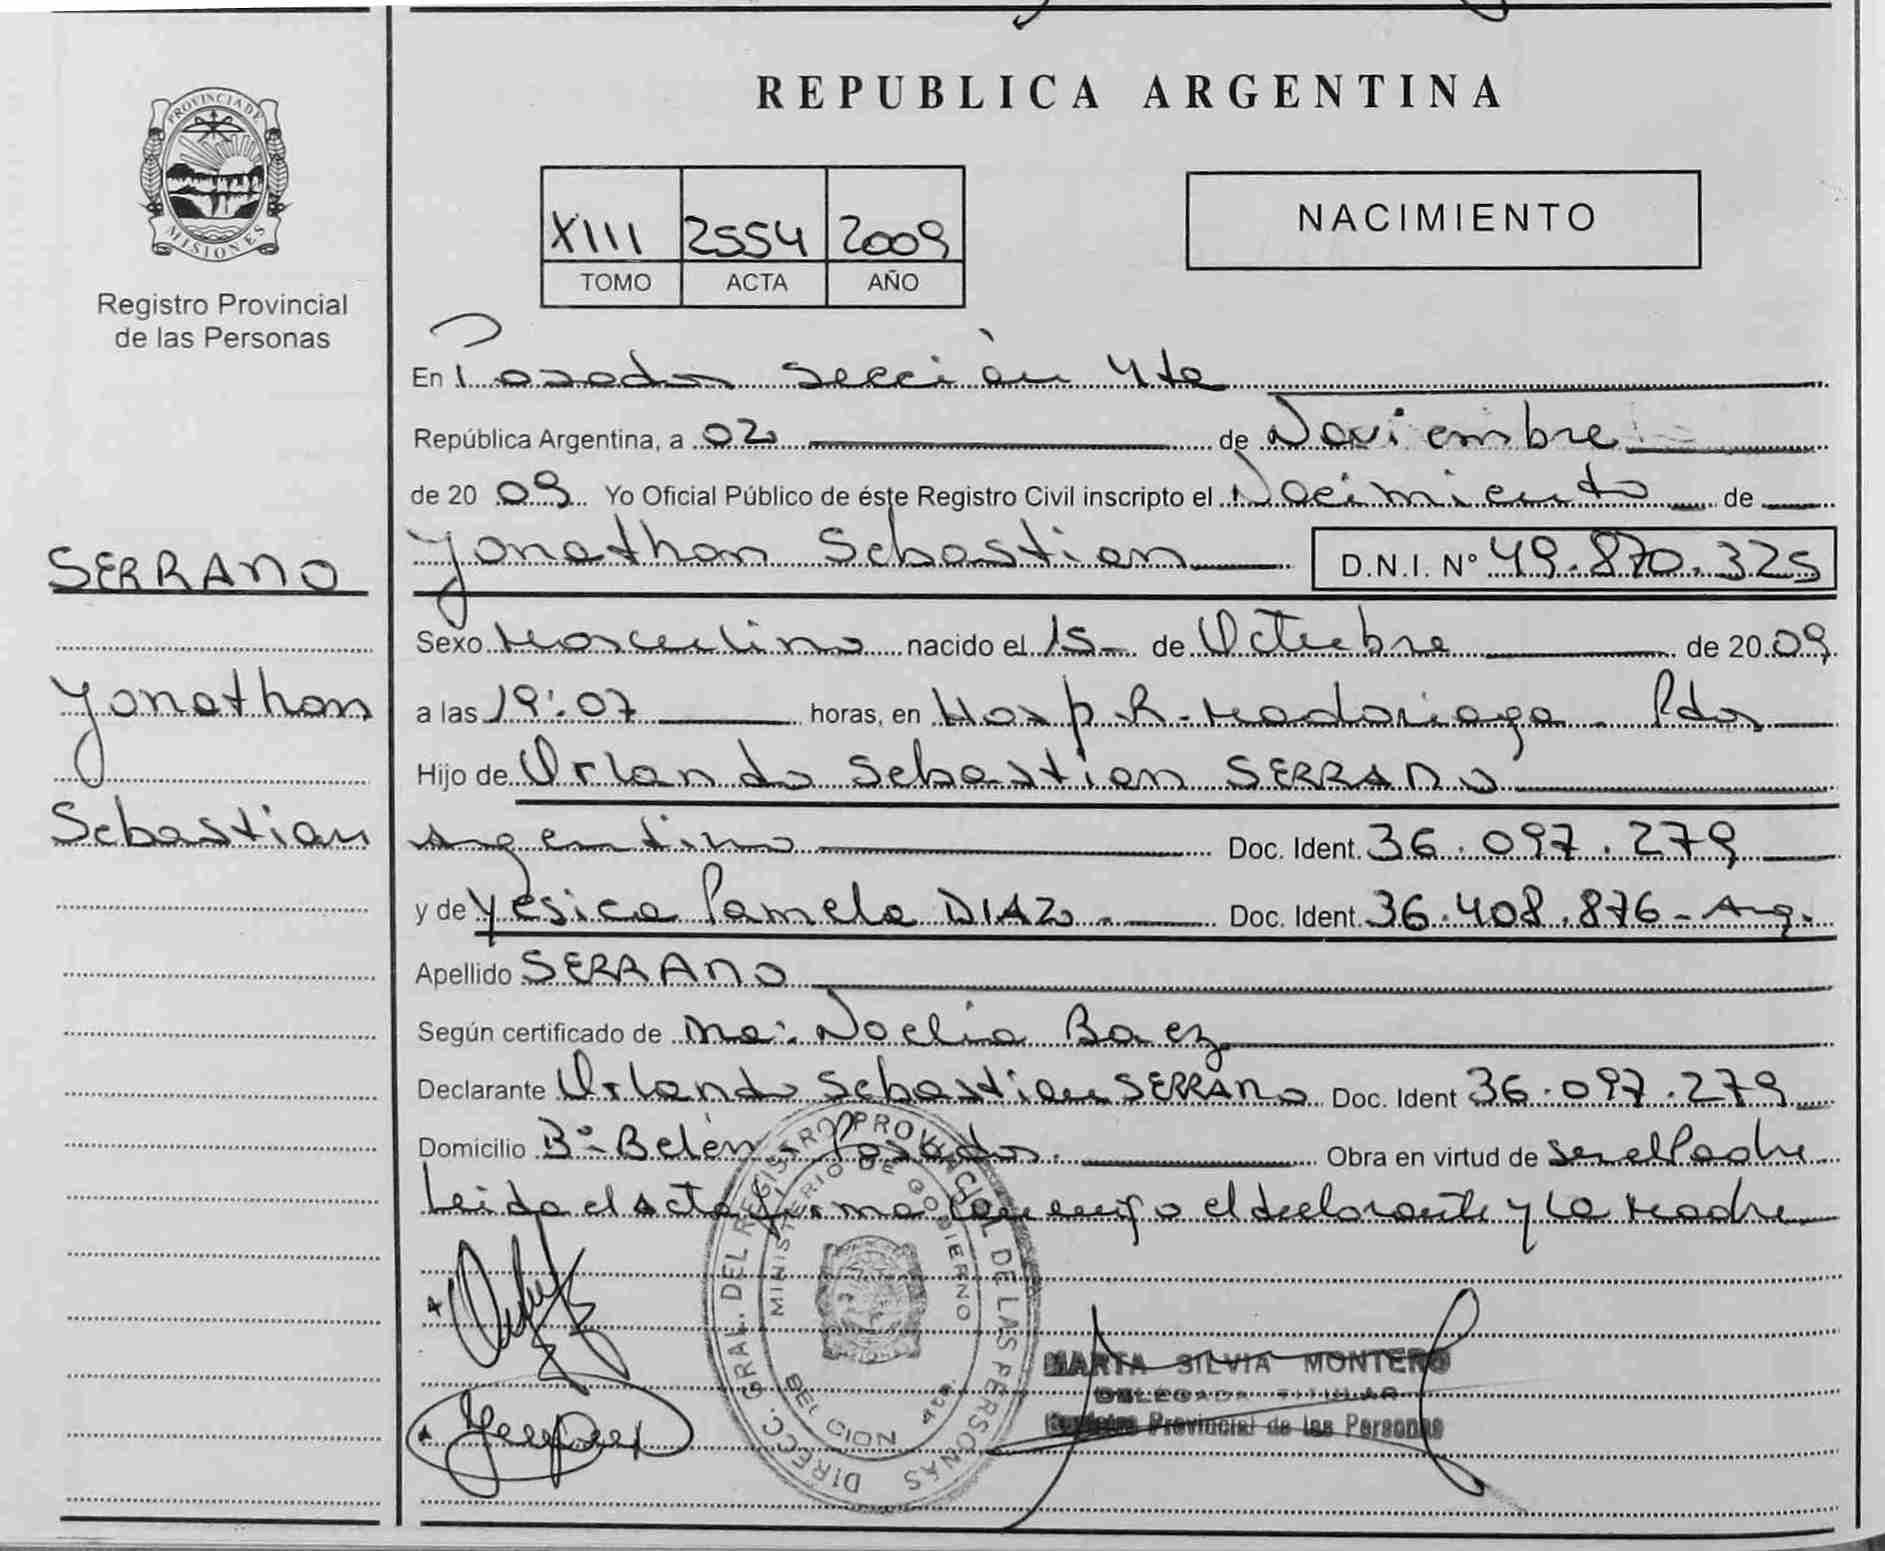 REPUBLICA ARGENTINA
PROVINCIA DE MISIONES
Registro Provincial
de las Personas
XIII 2554 2009
TOMO ACTA AÑO
NACIMIENTO
En Posadas Sección 4ta
República Argentina, a 02 de Noviembre
de 20 09 Yo Oficial Público de éste Registro Civil inscripto el Nacimiento de
Yonathan Sebastian D.N.I. Nº 49.870.325
SERRANO
Yonathan
Sebastian
Sexo Masculino nacido el 15 de Octubre de 20 09
a las 19:07 horas, en Hosp. R. Madariaga - Pdas
Hijo de Orlando Sebastian SERRANO
Argentino Doc. Ident. 36.097.279
y de Yesica Pamela DIAZ. Doc. Ident. 36.408.876 - Arg.
Apellido SERRANO
Según certificado de Ma: Noelia Baez
Declarante Orlando Sebastian SERRANO Doc. Ident 36.097.279
Domicilio Bº Belén - Posadas. Obra en virtud de ser el Padre
Leida el acta firma conmigo el declarante y la Madre
DIRECC. GRAL. DEL REGISTRO PROVINCIAL DE LAS PERSONAS
MINISTERIO DE GOBIERNO
MARTA SILVIA MONTERO
DELEGADA TITULAR
Registro Provincial de las Personas